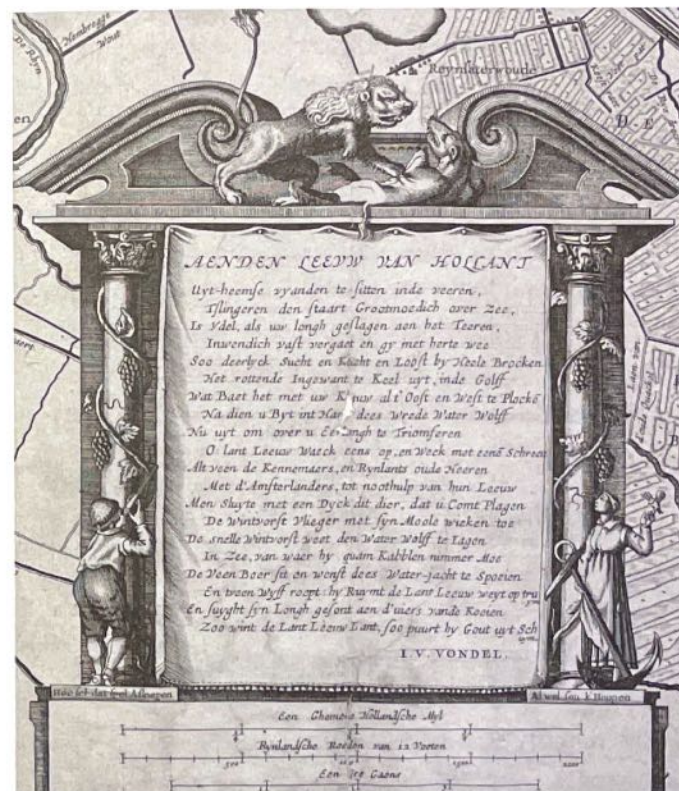 De Rhyn
Hembrugge
Wout
en
Reynsaterwoude
D E
AENDEN LEEUW VAN HOLLANT
Uyt-heemse vyanden te sitten inde veeren,
Tslingeren den staart Grootmoedich over Zee,
Is Ydel, als uw longh geslagen aen het Teeren,
Inwendich vast vergaet en gy met herte wee
Soo deerlyck Sucht en Kucht en Loost by Heele Brocken
Het rottende Ingewant te Keel uyt, inde Golff
Wat Baet het met uw al t'Oost en West te Plockē
Na dien u Byt int dees wrede Water Wolff
Nu uyt om over u te Triomferen
O lant Leeuw Waeck eens op, en Weck met eenē Schreeu
Alt veen de Kennemaers, en Rynlants oude Heeren
Met d'Amsterlanders, tot noothulp van hun Leeuw
Men Sluyte met een Dyck dit dier, dat u Comt Plagen
De Wintvorst Vlieger met syn Moole wieken toe
De snelle Wintvorst weet den Water Wolff te Lagen
In Zee, van waer hy quam Kabblen nimmer Moe
De Veen Boer sit en wenst dees Water-jacht te Spoeien
En tveen Wyff roept: hy Ruymt de Lant Leeuw weyt op
En suyght syn Longh gesont aen d'uiers vande Koeien
Zoo wint de Lant Leeuw Lant, soo puurt hy Gout uyt Sch
I. V. VONDEL.
Hoe sel dat spel Afloopen
Al wel sou k Hoopen
Een Ghemeene Hollandsche Myl
Rynlandsche Roeden van 12 Voeten
500 1500 2000
Een Gaens